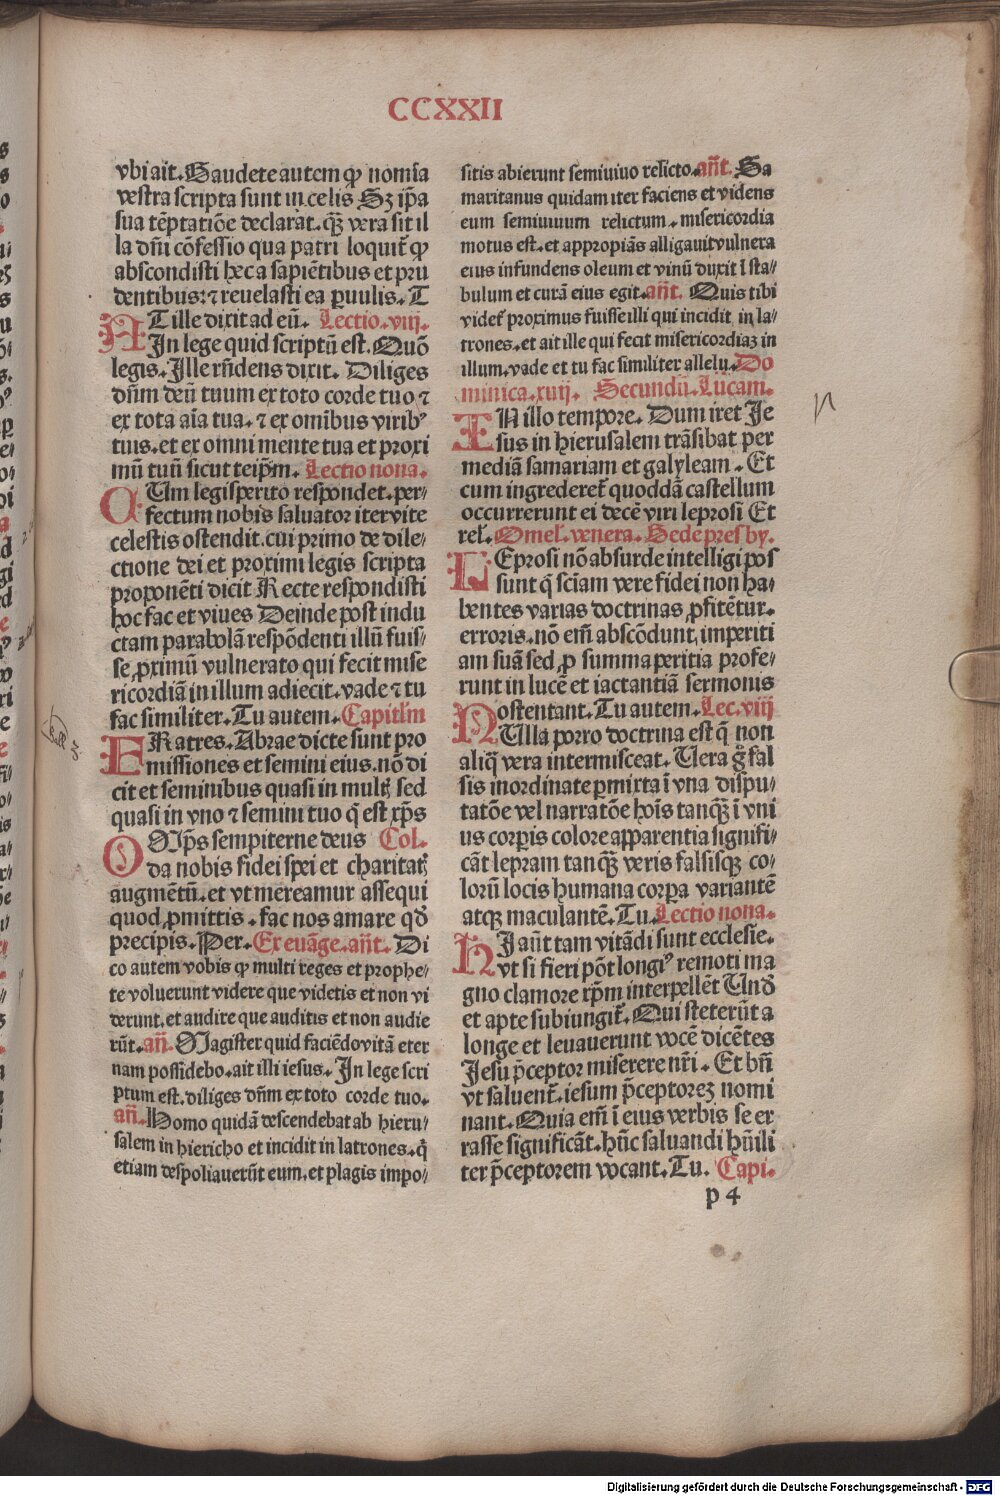 CCXXII
vbi ait. Gaudete autem ꝙ nomīa
vestra scripta sunt in celis Sꝫ ip̄a
sua tēptatiōe declarat. qꝫ vera sit il
la dn̄i cōfessio qua patri loquit̄ ꝙ
abscondisti hec a sapiētibus et pru
dentibus: ⁊ reuelasti ea ꝑuulis. T
AT ille dixit ad eū. Lectio. viij.
In lege quid scriptū est. Quō
legis. Ille rn̄dens dixit. Diliges
dn̄m deū tuum ex toto corde tuo ⁊
ex tota aīa tua. ⁊ ex omībus viribꝰ
tuis. et ex omni mente tua et proxi
mū tuū sicut teip̄m. Lectio nona.
CUm legisperito respondet. per⸗
fectum nobis saluator iter vite
celestis ostendit. cui primo de dile⸗
ctione dei et proximi legis scripta
proponēti dicit Recte respondisti
hoc fac et viues Deinde post indu
ctam parabolā respōdenti illū fuis⸗
se ꝓximū vulnerato qui fecit mise
ricordiā in illum adiecit. vade ⁊ tu
fac similiter. Tu autem. Capitl̄m
FRatres. Abrae dicte sunt pro
missiones et semini eius. nō di
cit et seminibus quasi in multꝭ sed
quasi in vno ⁊ semini tuo q̄ est xp̄s
OMnp̄s sempiterne deus Col.
da nobis fidei spei et charitatꝭ
augmētū. et vt mereamur assequi
quod ꝓmittis. fac nos amare qđ
precipis. Per. Ex euāge. an̄t. Di
co autem vobis ꝙ multi reges et prophe⸗
te voluerunt videre que videtis et non vi
derunt. et audire que auditis et non audie
rūt. an̄. Magister quid faciēdo vitā eter
nam possidebo. ait illi iesus. In lege scri
ptum est. diliges dn̄m ex toto corde tuo.
an̄. Homo quidā descendebat ab hieru⸗
salem in hiericho et incidit in latrones. q̄
etiam despoliauerūt eum. et plagis impo⸗
sitis abierunt semiuiuo relicto. an̄t. Sa
maritanus quidam iter faciens et videns
eum semiuiuum relictum. misericordia
motus est. et appropiās alligauit vulnera
eius infundens oleum et vinū duxit ī sta⸗
bulum et curā eius egit. an̄t. Quis tibi
videt̄ proximus fuisse illi qui incidit in la⸗
trones. et ait ille qui fecit misericordiaꝫ in
illum. vade et tu fac similiter allelu. Do
minica. xiij. Secundū. Lucam.
IN illo tempore. Dum iret Je
sus in hierusalem trāsibat per
mediā samariam et galyleam. Et
cum ingrederet̄ quoddā castellum
occurrerunt ei decē viri leprosi Et
rel̄. Omel̄. venera. Bede presby.
LEprosi nō absurde intelligi pos
sunt q̄ sciam vere fidei non ha⸗
bentes varias doctrinas ꝓfitētur.
erroris. nō em̄ abscōdunt. imperiti
am suā sed ꝓ summa peritia profe⸗
runt in lucē et iactantiā sermonis
ostentant. Tu autem. Lec. viij
NUlla porro doctrina est q̄ non
aliq̄ vera intermisceat. Uera g̊ fal
sis inordinate ꝑmixta ī vna dispu⸗
tatōe vel narratōe hoīs tanqꝫ ī vni
us corꝑis colore apparentia signifi⸗
cāt lepram tanqꝫ veris falsisqꝫ co⸗
lorū locis humana corpa variantē
atqꝫ maculantē. Tu. Lectio nona.
HI aūt tam vitādi sunt ecclesie.
vt si fieri pōt longiꝰ remoti ma
gno clamore xp̄m interpellēt Unđ
et apte subiungit̄. Qui steterūt a
longe et leuauerunt vocē dicētes
Jesu p̄ceptor miserere nr̄i. Et bn̄
vt saluent̄. iesum p̄ceptoreꝫ nomi
nant. Quia em̄ ī eius verbis se er
rasse significāt. hūc saluandi hūili
ter p̄ceptorem vocant. Tu. Capi.
p 4
Digitalisierung gefördert durch die Deutsche Forschungsgemeinschaft - DFG